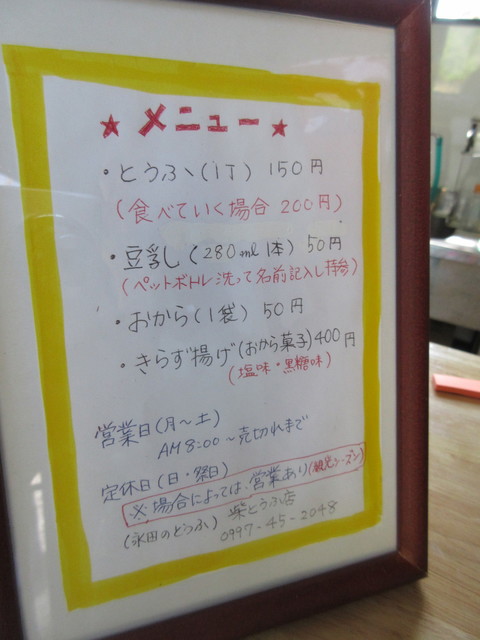 ★ メニュー ★
・とうふ(1丁) 150円
(食べていく場合 200円)
・豆乳(280ml 1本) 50円
(ペットボトル洗って名前記入し持参)
・おから(1袋) 50円
・きらず揚げ(おから菓子)400円
(塩味・黒糖味)
営業日(月〜土)
AM8:00〜売切れまで
定休日(日・祭日)
※場合によっては、営業あり(観光シーズン)
(永田のとうふ) 柴とうふ店
0997-45-2048